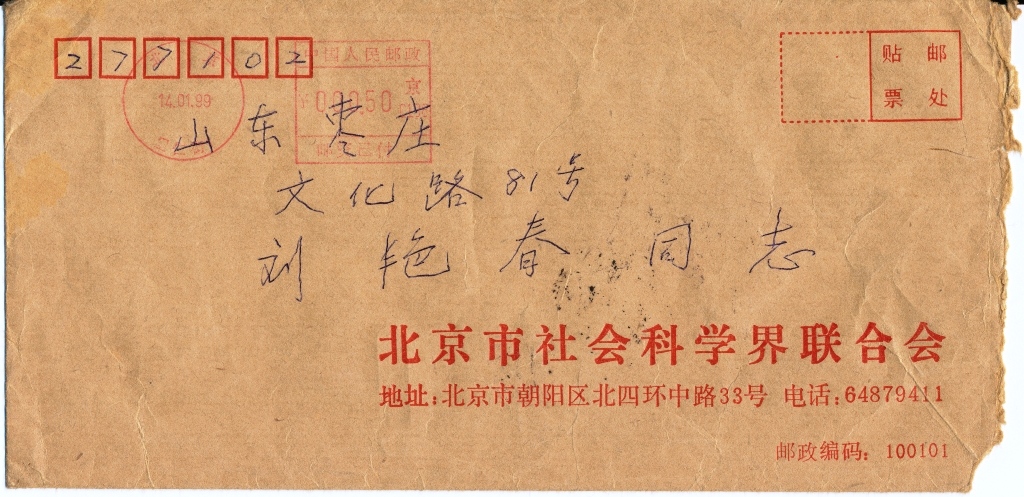 277102
中国人民邮政
京
00050
14.01.99
贴 邮
票 处
山东枣庄
文化路81号
刘艳春同志
北京市社会科学界联合会
地址:北京市朝阳区北四环中路33号 电话:64879411
邮政编码: 100101